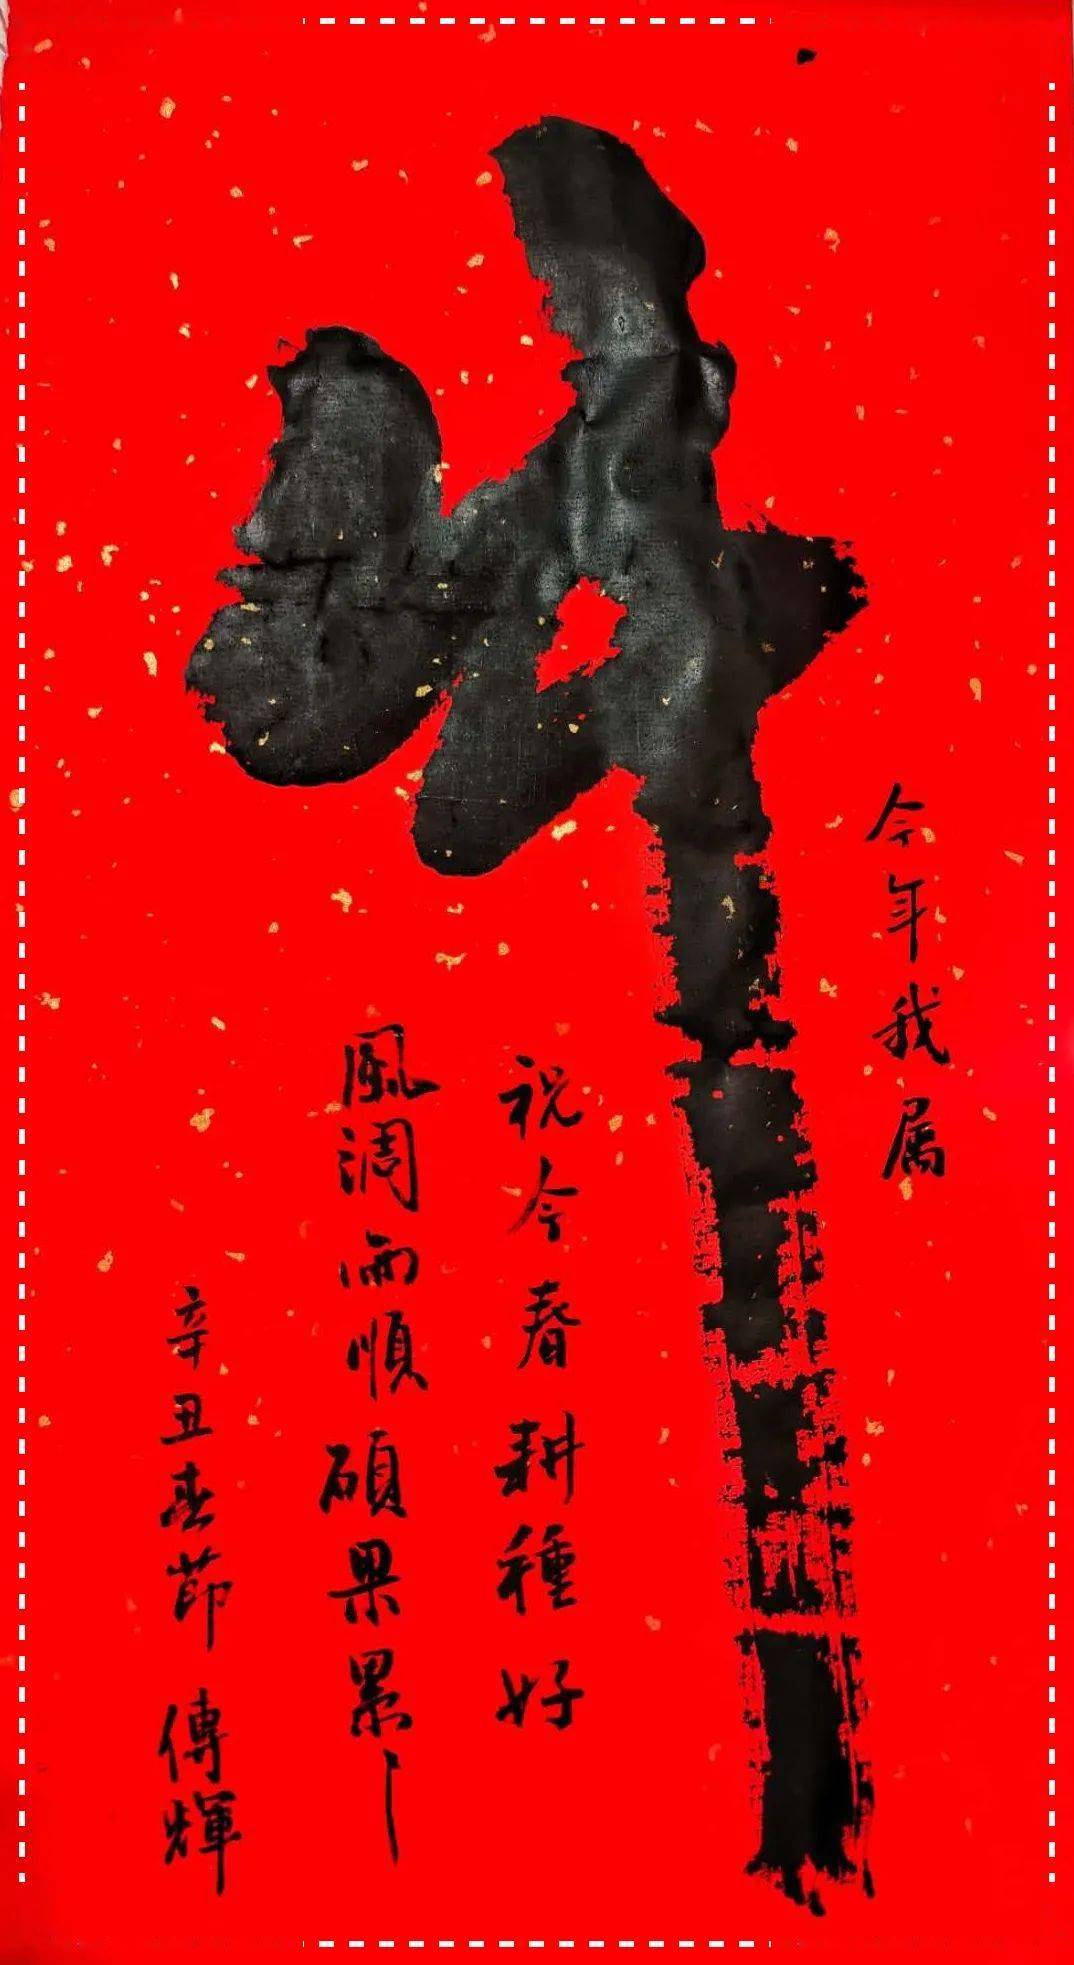 今年我属
牛
祝今春耕種好
風調雨順碩果累々
辛丑春節 傳輝